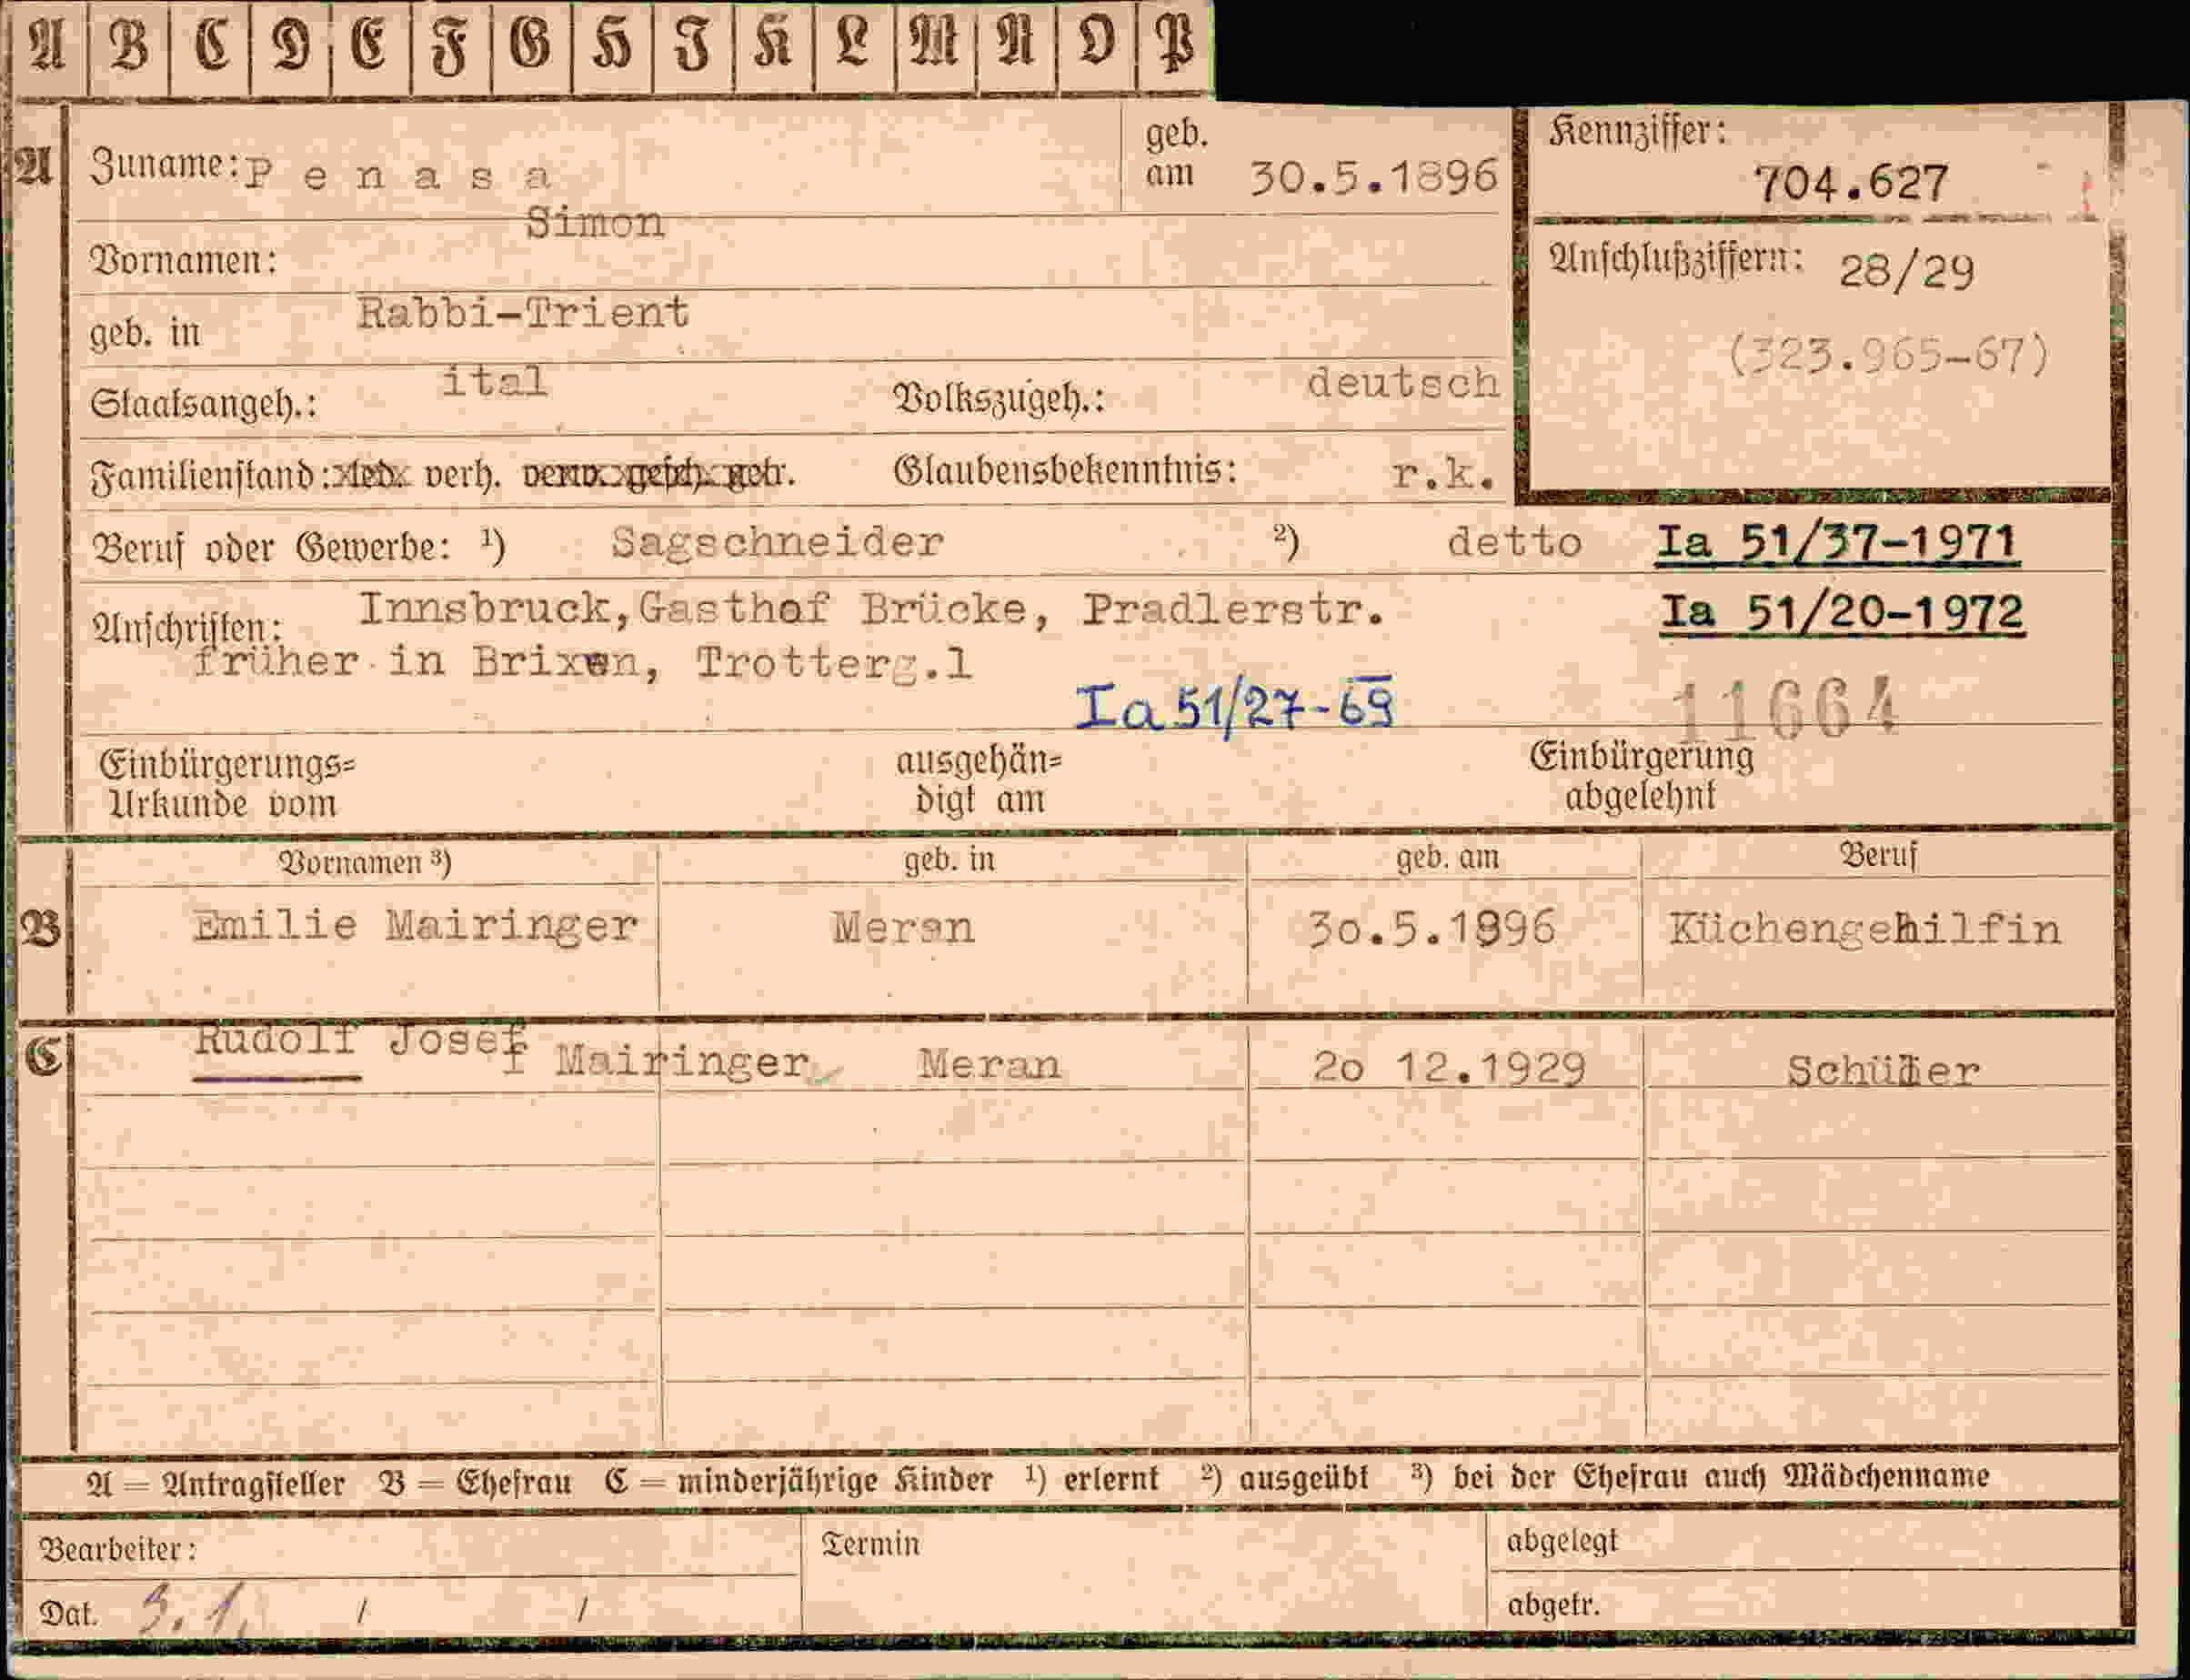 A B C D E F G H J K L M N O P
A Zuname: Penasa geb. am 30.5.1896
Kennziffer: 704.627
Simon
Vornamen:
Anschlußziffern: 28/29
geb. in Rabbi-Trient
(323.965-67)
Staatsangeh.: ital Volkszugeh.: deutsch
Familienstand: led. verh. verw. gesch. getr. Glaubensbekenntnis: r.k.
Beruf oder Gewerbe: ¹) Sagschneider ²) detto Ia 51/37-1971
Anschriften: Innsbruck, Gasthof Brücke, Pradlerstr. Ia 51/20-1972
früher in Brixen, Trotterg.1
Ia 51/27-69 11664
Einbürgerungs= ausgehän= Einbürgerung
Urkunde vom digt am abgelehnt
Vornamen ³) geb. in geb. am Beruf
B Emilie Mairinger Meran 30.5.1896 Küchengehilfin
C Rudolf Josef Mairinger Meran 20 12.1929 Schüler
A = Antragsteller B = Ehefrau C = minderjährige Kinder ¹) erlernt ²) ausgeübt ³) bei der Ehefrau auch Mädchenname
Bearbeiter: Termin abgelegt
Dat. 3.1. / / abgetr.